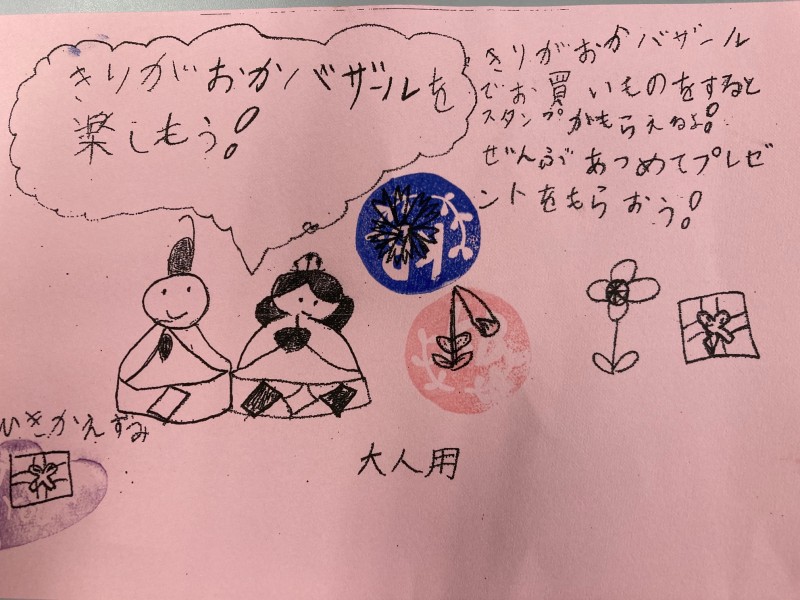 きりがおかバザールを
楽しもう!
きりがおかバザール
でお買いものをすると
スタンプがもらえるよ!
ぜんぶあつめてプレゼ
ントをもらおう!
いきかえずみ
大人用